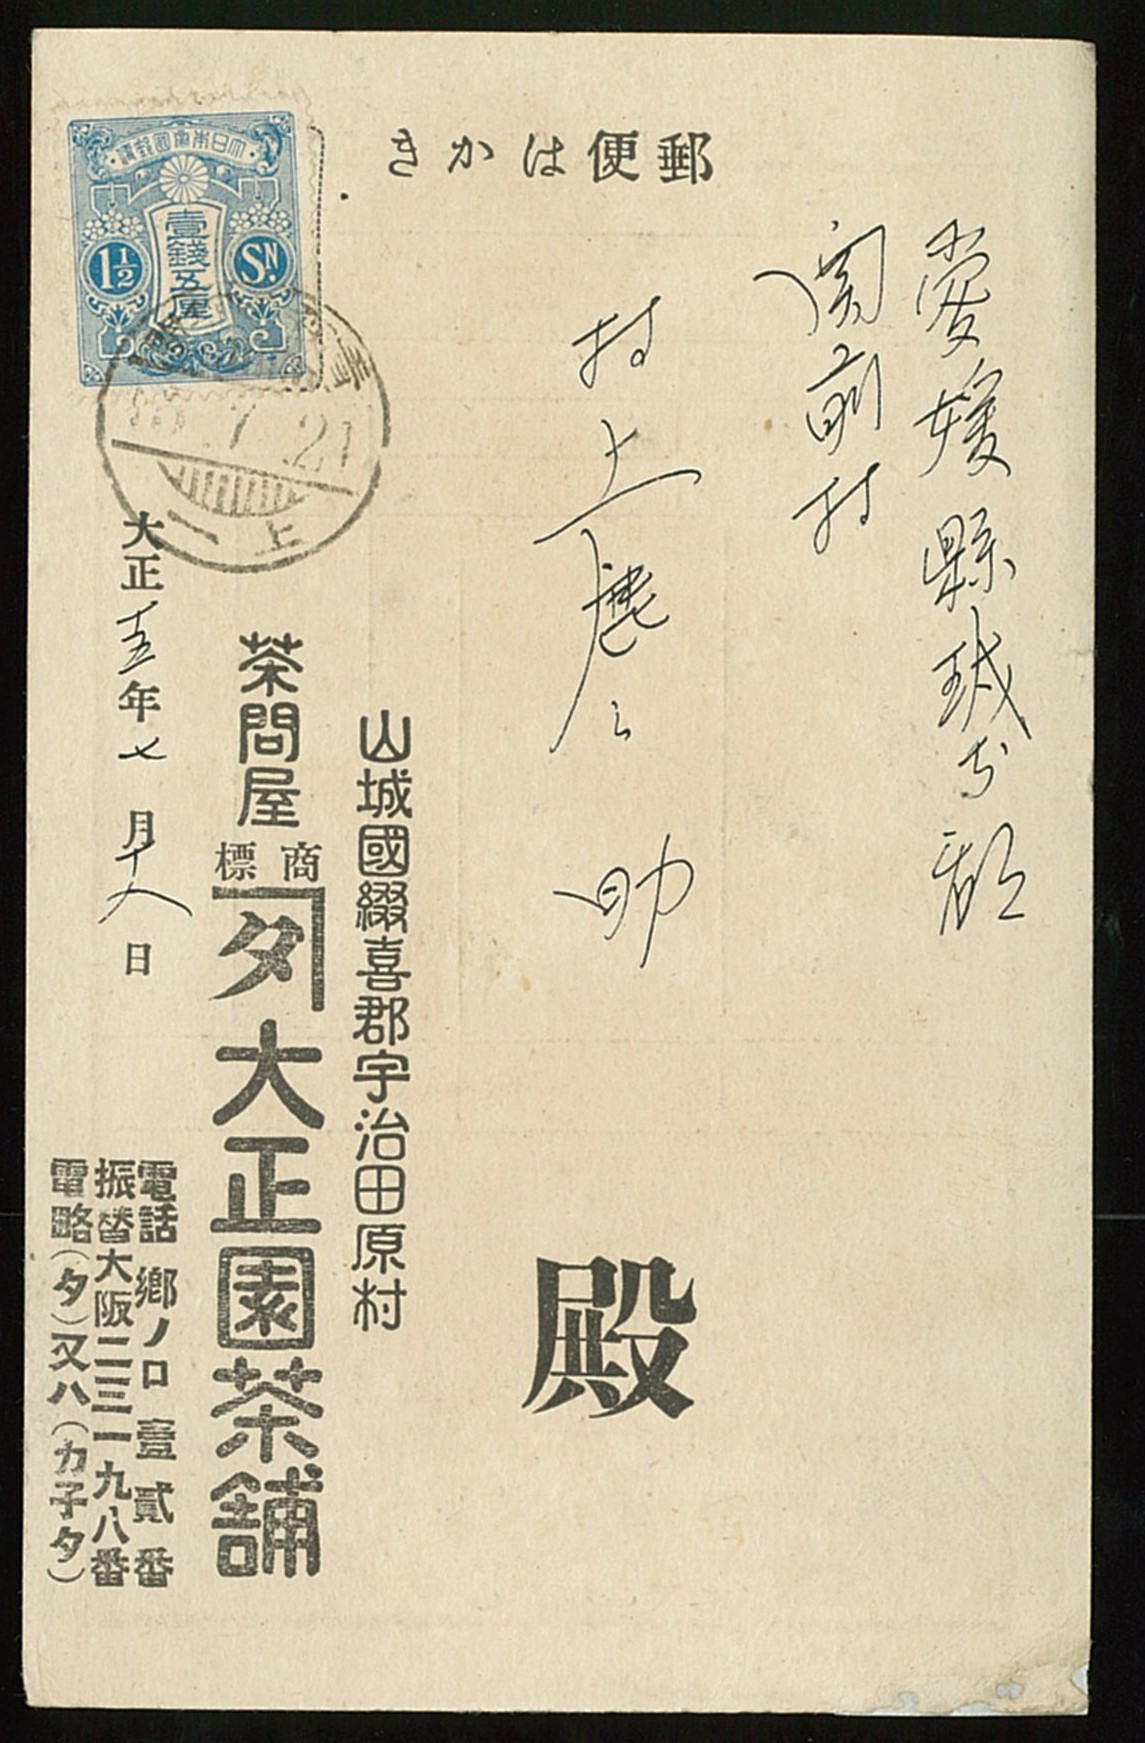 郵便はかき
大日本帝國郵便
壹錢五厘
1½ SN.
7 21
上一
愛媛縣越智郡
関前村
村上鹿之助
殿
山城國綴喜郡宇治田原村
茶問屋 商標 タ 大正園茶舗
大正十五年七月十八日
電話 鄕ノ口 壹貳番
振替大阪二三一九八番
電略(タ)又ハ(カ子タ)